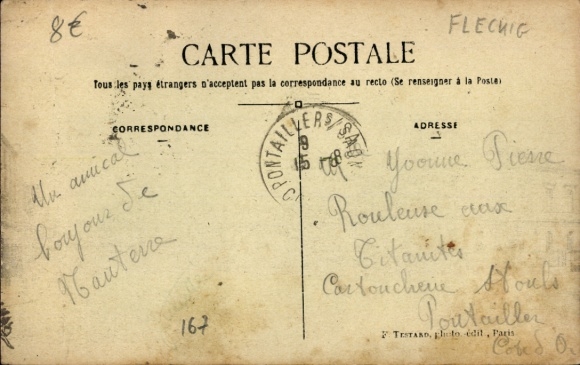 8€
FLECHIG
CARTE POSTALE
Tous les pays étrangers n'acceptent pas la correspondance au recto (Se renseigner à la Poste)
CORRESPONDANCE
ADRESSE
PONTAILLER S/SAONE
9
15 -8
Un amical
bonjour de
Nanterre
167
Yvonne Pierre
Rouleuse aux
Titanites
Cartoucherie
Pontailler
Côte d'Or
F. TESTARD, photo.-édit., Paris